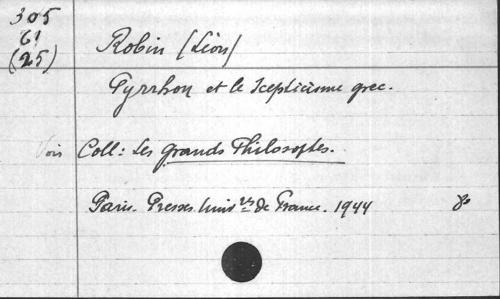 305
61
(25)
Robin (Léon)
Pyrrhon et le Scepticisme grec.
Vois Coll: Les grands Philosophes.
Paris. Presses Univ res de France. 1944 8º